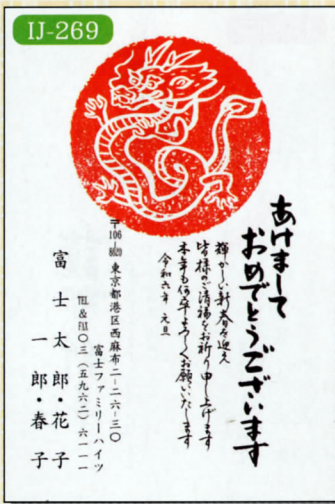 IJ-269
あけまして
おめでとうございます
輝かしい新春を迎え
皆様のご清福をお祈り申し上げます
本年も何卒よろしくお願いいたします
令和六年 元旦
〒106-8620 東京都港区西麻布二-二六-三〇
富士ファミリーハイツ
TEL&FAX〇三(五九六二)六一一一
富士太郎・花子
一郎・春子